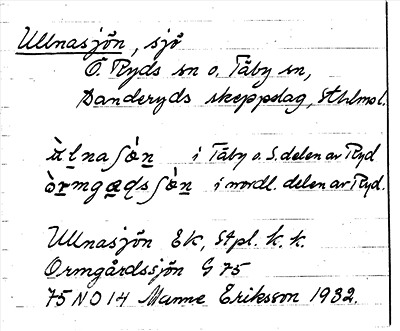 Ullnasjön, sjö
Ö. Ryds sn o. Täby sn,
Danderyds skeppslag, Sthlms l.
i Täby o. S. delen av Ryd
i nordl. delen av Ryd.
Ullnasjön Ek, Stpl. k. k.
Ormgårdssjön G 75
75 NO 14 Manne Eriksson 1932.